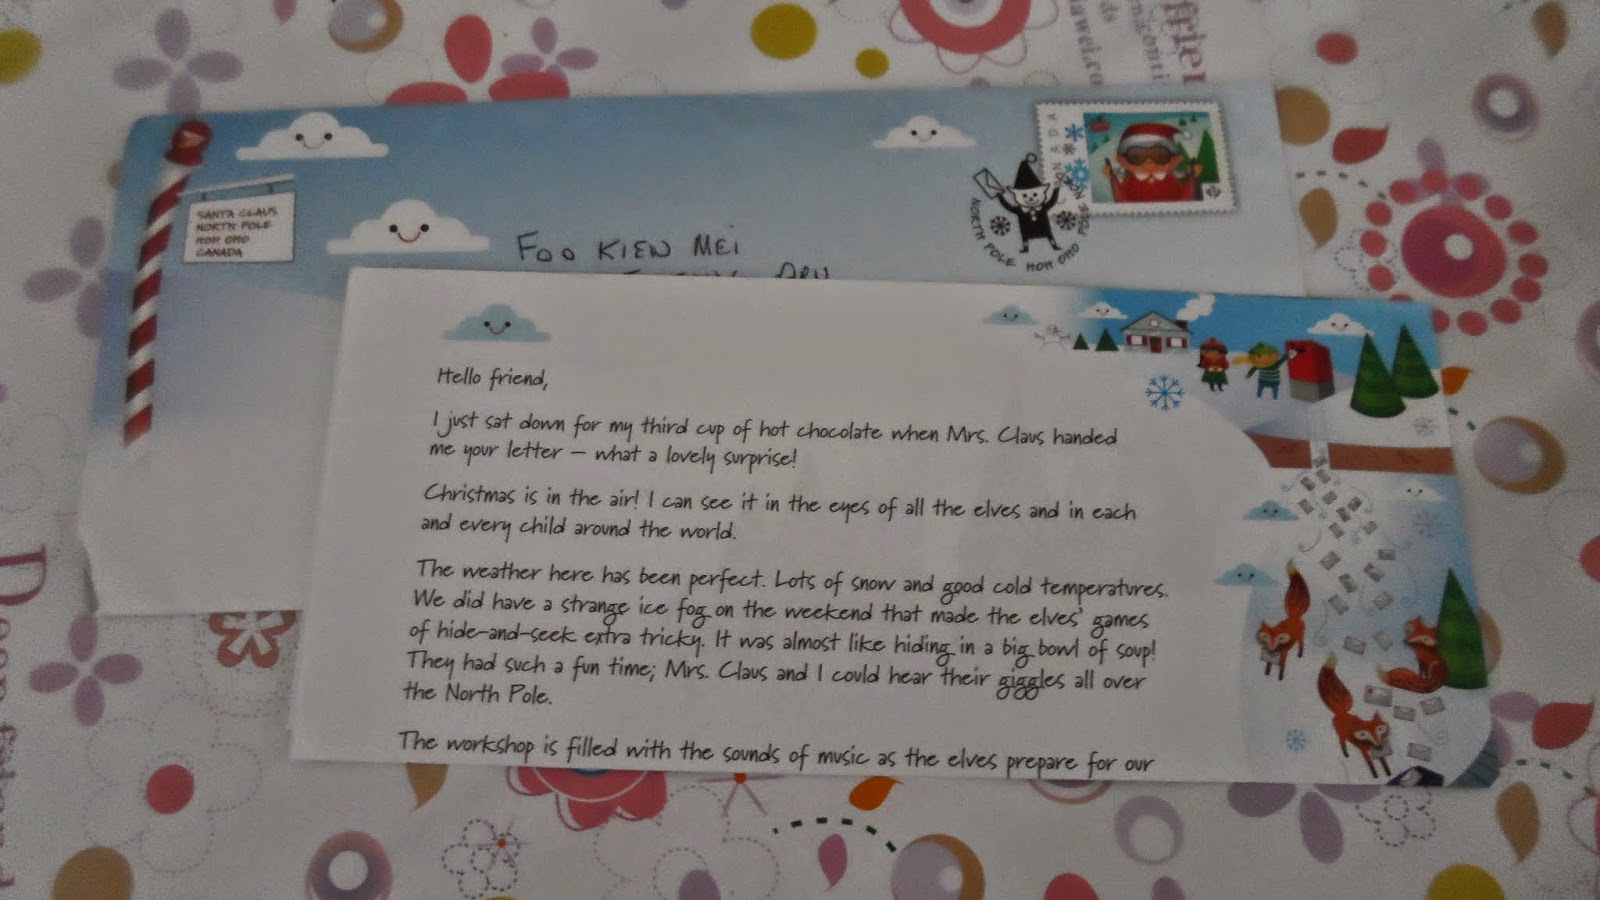 SANTA CLAUS
NORTH POLE
HOH OHO
CANADA
CANADA
NORTH POLE HOH OHO
FOO KIEN MEI
Hello friend,
I just sat down for my third cup of hot chocolate when Mrs. Claus handed
me your letter – what a lovely surprise!
Christmas is in the air! I can see it in the eyes of all the elves and in each
and every child around the world.
The weather here has been perfect. Lots of snow and good cold temperatures.
We did have a strange ice fog on the weekend that made the elves' games
of hide-and-seek extra tricky. It was almost like hiding in a big bowl of soup!
They had such a fun time; Mrs. Claus and I could hear their giggles all over
the North Pole.
The workshop is filled with the sounds of music as the elves prepare for our